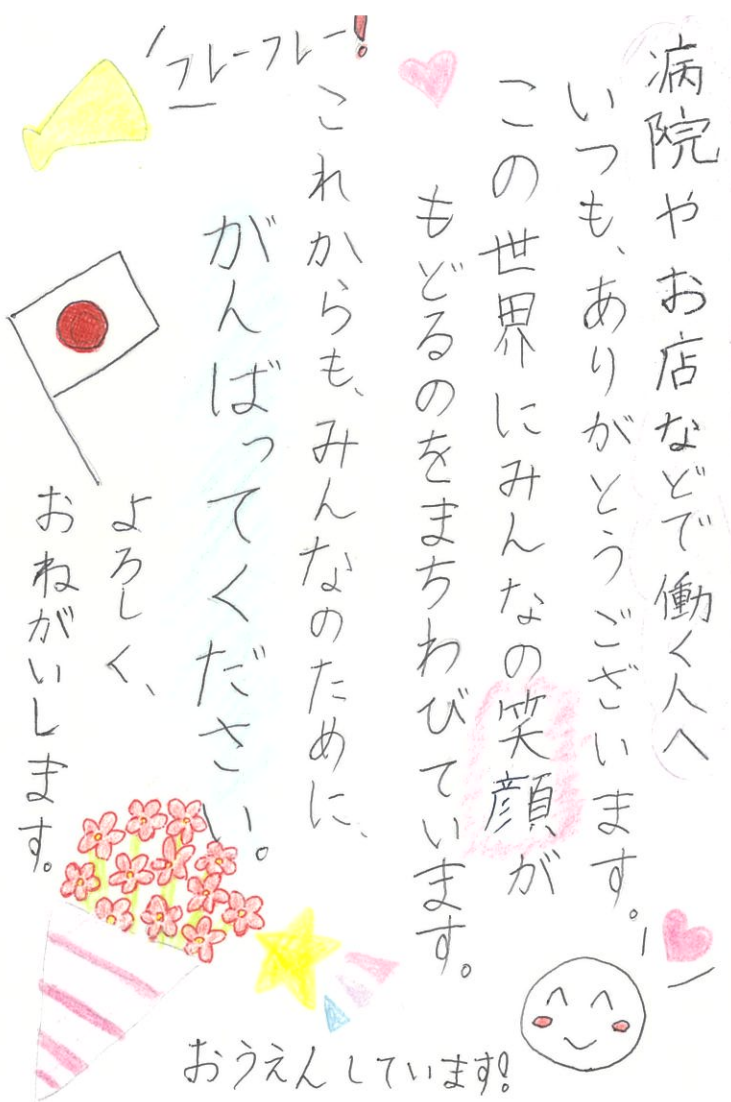 病院やお店などで働く人へ
いつも、ありがとうございます。
この世界にみんなの笑顔が
もどるのをまちわびています。
これからも、みんなのために、
がんばってください。
よろしく、
おねがいします。
フレーフレー!
おうえんしています!